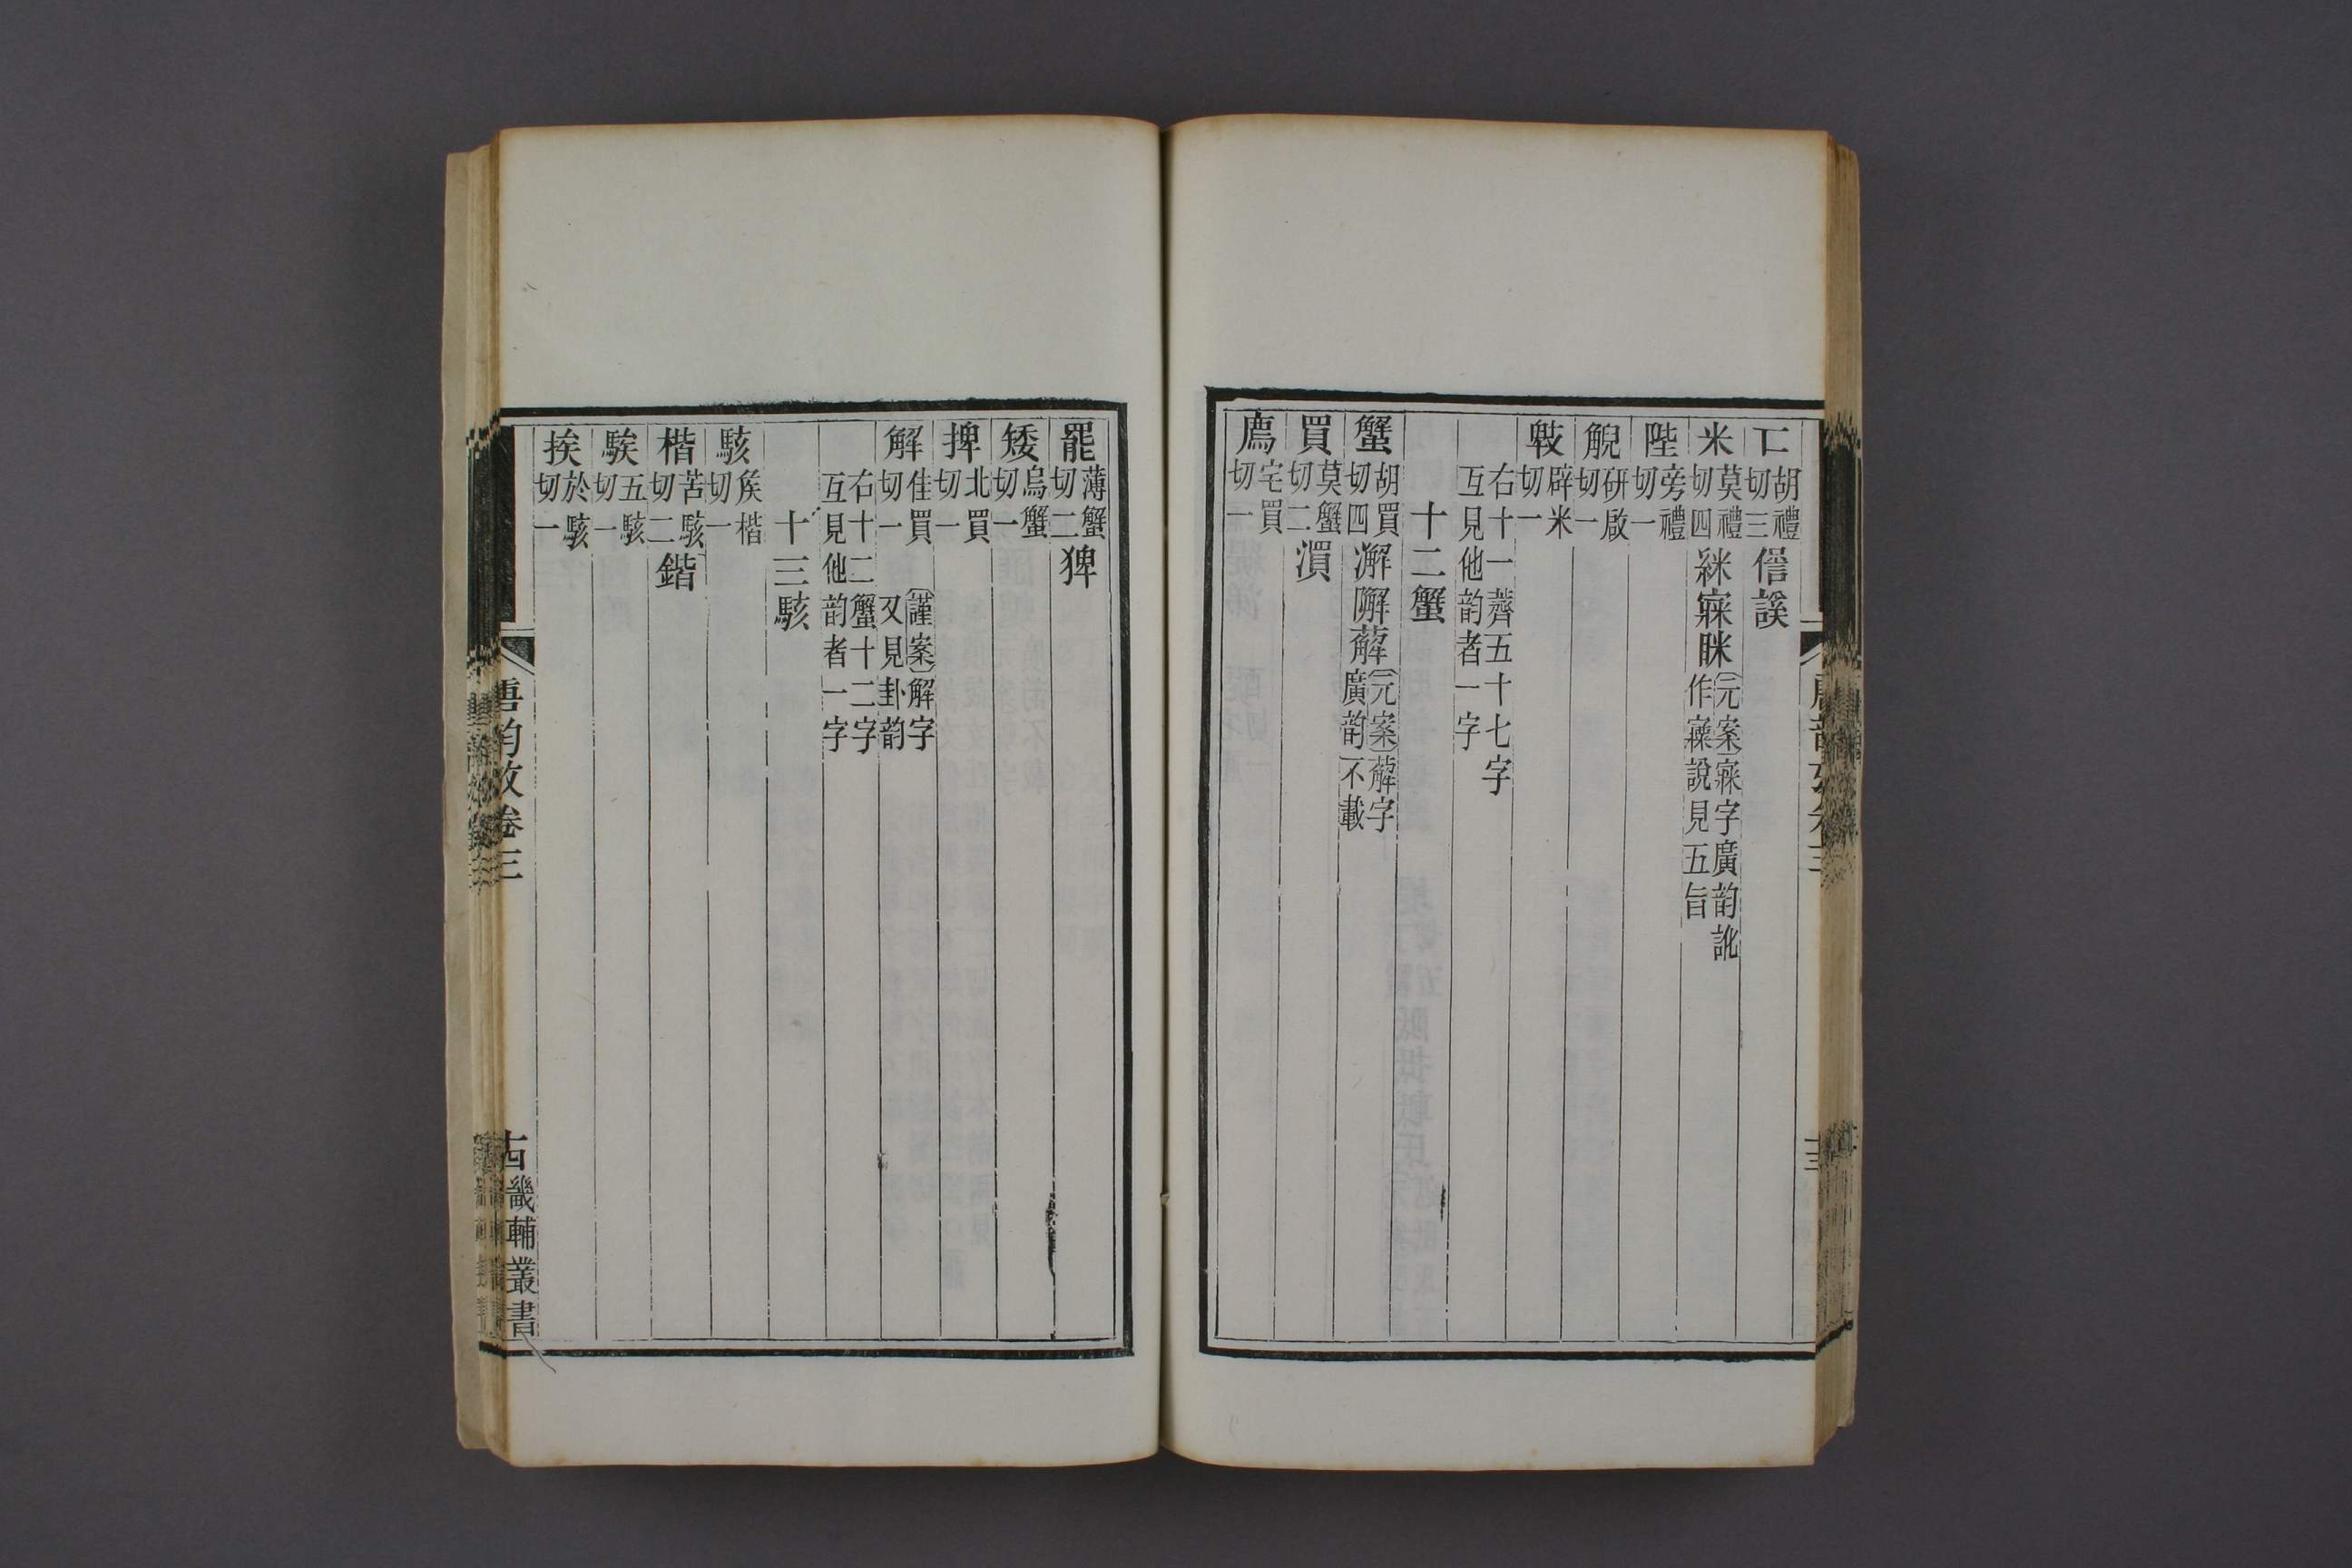 匸胡禮切三徯謑
米莫禮切四䋛眯〔元案〕字廣韵訛作說見五旨
陛旁禮切一
觬研啟切一
㪏辟米切一
右十一薺五十七字
互見他韵者一字
十二蟹
蟹胡買切四澥𨼬薢〔元案〕薢字廣韵不載
買莫蟹切二㵋
廌宅買切一
唐韵攷卷三
十三
罷薄蟹切二猈
矮烏蟹切一
捭北買切一
解佳買切一〔謹案〕解字又見卦韵
右十二蟹十二字
互見他韵者一字
十三駭
駭矦楷切一
楷苦駭切二鍇
騃五駭切一
挨於駭切一
唐韵攷卷三
十四
畿輔叢書